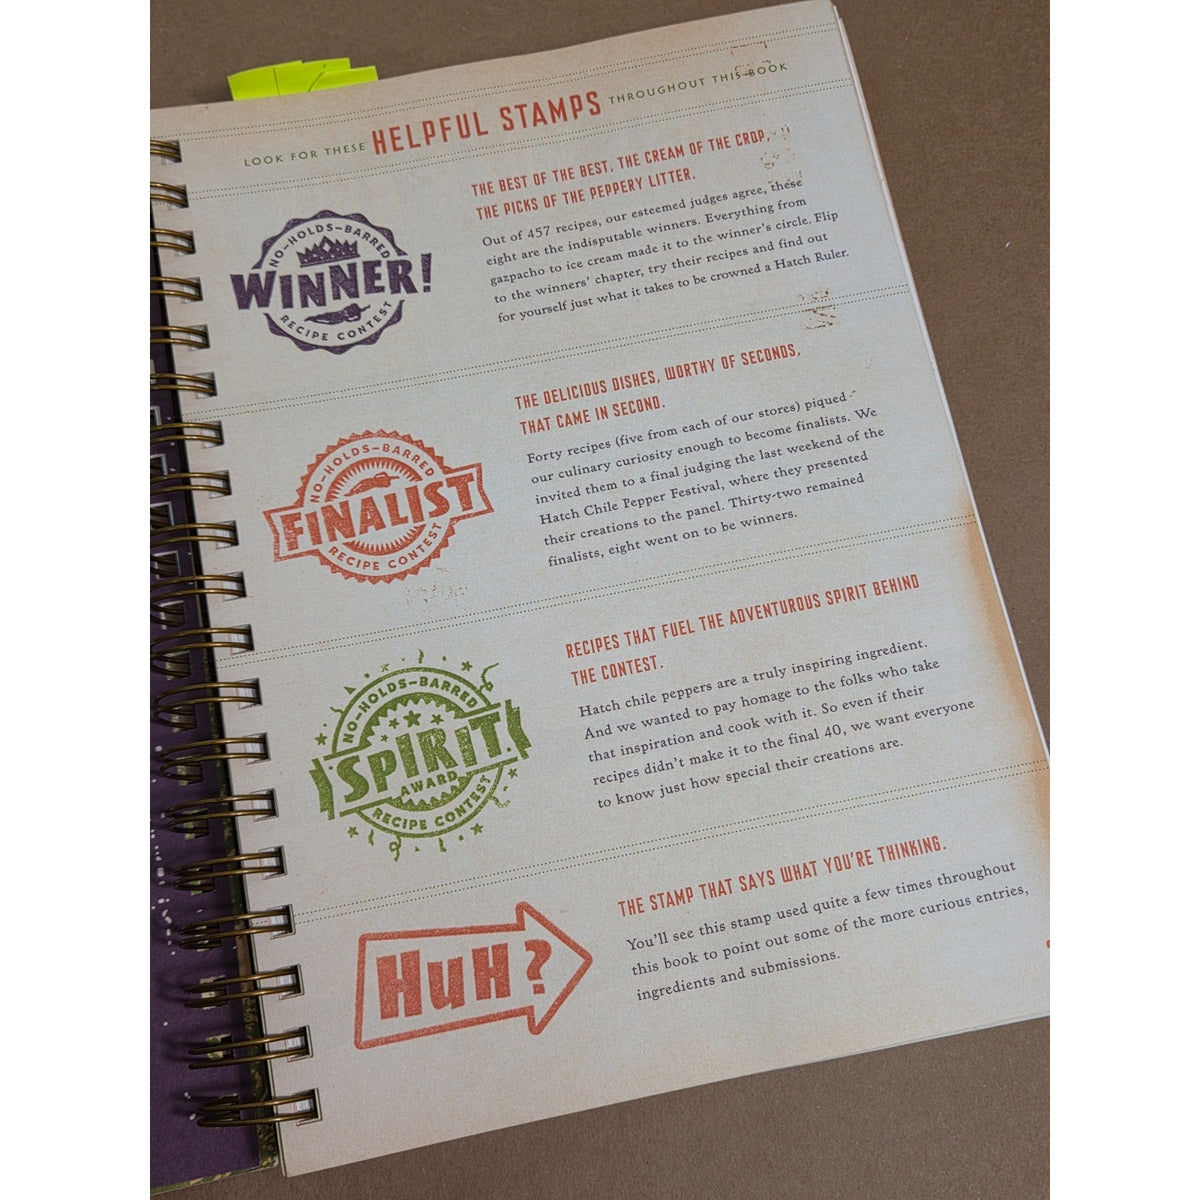 LOOK FOR THESE HELPFUL STAMPS THROUGHOUT THIS BOOK
NO-HOLDS-BARRED
WINNER!
RECIPE CONTEST
THE BEST OF THE BEST, THE CREAM OF THE CROP,
THE PICKS OF THE PEPPERY LITTER.
Out of 457 recipes, our esteemed judges agree, these
eight are the indisputable winners. Everything from
gazpacho to ice cream made it to the winner's circle. Flip
to the winners' chapter, try their recipes and find out
for yourself just what it takes to be crowned a Hatch Ruler.
NO-HOLDS-BARRED
FINALIST
RECIPE CONTEST
THE DELICIOUS DISHES, WORTHY OF SECONDS,
THAT CAME IN SECOND.
Forty recipes (five from each of our stores) piqued
our culinary curiosity enough to become finalists. We
invited them to a final judging the last weekend of the
Hatch Chile Pepper Festival, where they presented
their creations to the panel. Thirty-two remained
finalists, eight went on to be winners.
NO-HOLDS-BARRED
SPIRIT
AWARD
RECIPE CONTEST
RECIPES THAT FUEL THE ADVENTUROUS SPIRIT BEHIND
THE CONTEST.
Hatch chile peppers are a truly inspiring ingredient.
And we wanted to pay homage to the folks who take
that inspiration and cook with it. So even if their
recipes didn't make it to the final 40, we want everyone
to know just how special their creations are.
HUH?
THE STAMP THAT SAYS WHAT YOU'RE THINKING.
You'll see this stamp used quite a few times throughout
this book to point out some of the more curious entries,
ingredients and submissions.